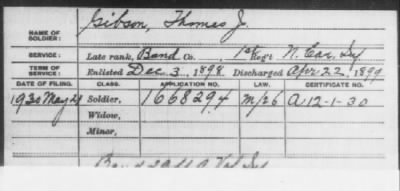 NAME OF SOLDIER: Gibson, Thomas J.
SERVICE: Late rank, Band Co. 1st Reg't N. Car. Inf
TERM OF SERVICE: Enlisted Dec. 3, 1898 Discharged Apr 22, 1899
DATE OF FILING. CLASS. APPLICATION NO. LAW. CERTIFICATE NO.
1930 May 29 Soldier, 1668294 A-12-1-30
Widow,
Minor,